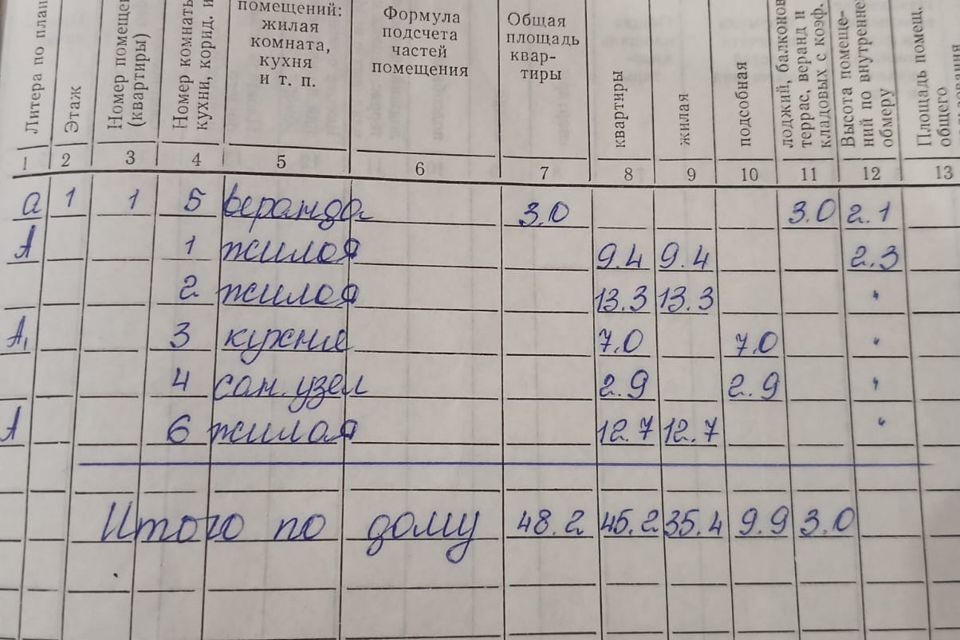 Литера по план
Этаж
Номер помещен
(квартиры)
Номер комнаты
кухни, корид. и
помещений:
жилая
комната,
кухня
и т. п.
Формула
подсчета
частей
помещения
Общая
площадь
квар-
тиры
квартиры
жилая
подсобная
лоджий, балконов
террас, веранд и
кладовых с коэф.
Высота помеще-
ний по внутренне
обмеру
Площадь помещ.
общего
1 2 3 4 5 6 7 8 9 10 11 12 13
а 1 1 5 веранда 3.0 3.0 2.1
А 1 жилая 9.4 9.4 2.3
2 жилая 13.3 13.3 "
А₁ 3 кухня 7.0 7.0 "
4 сан. узел 2.9 2.9 "
А 6 жилая 12.7 12.7 "
Итого по дому 48.2 45.2 35.4 9.9 3.0